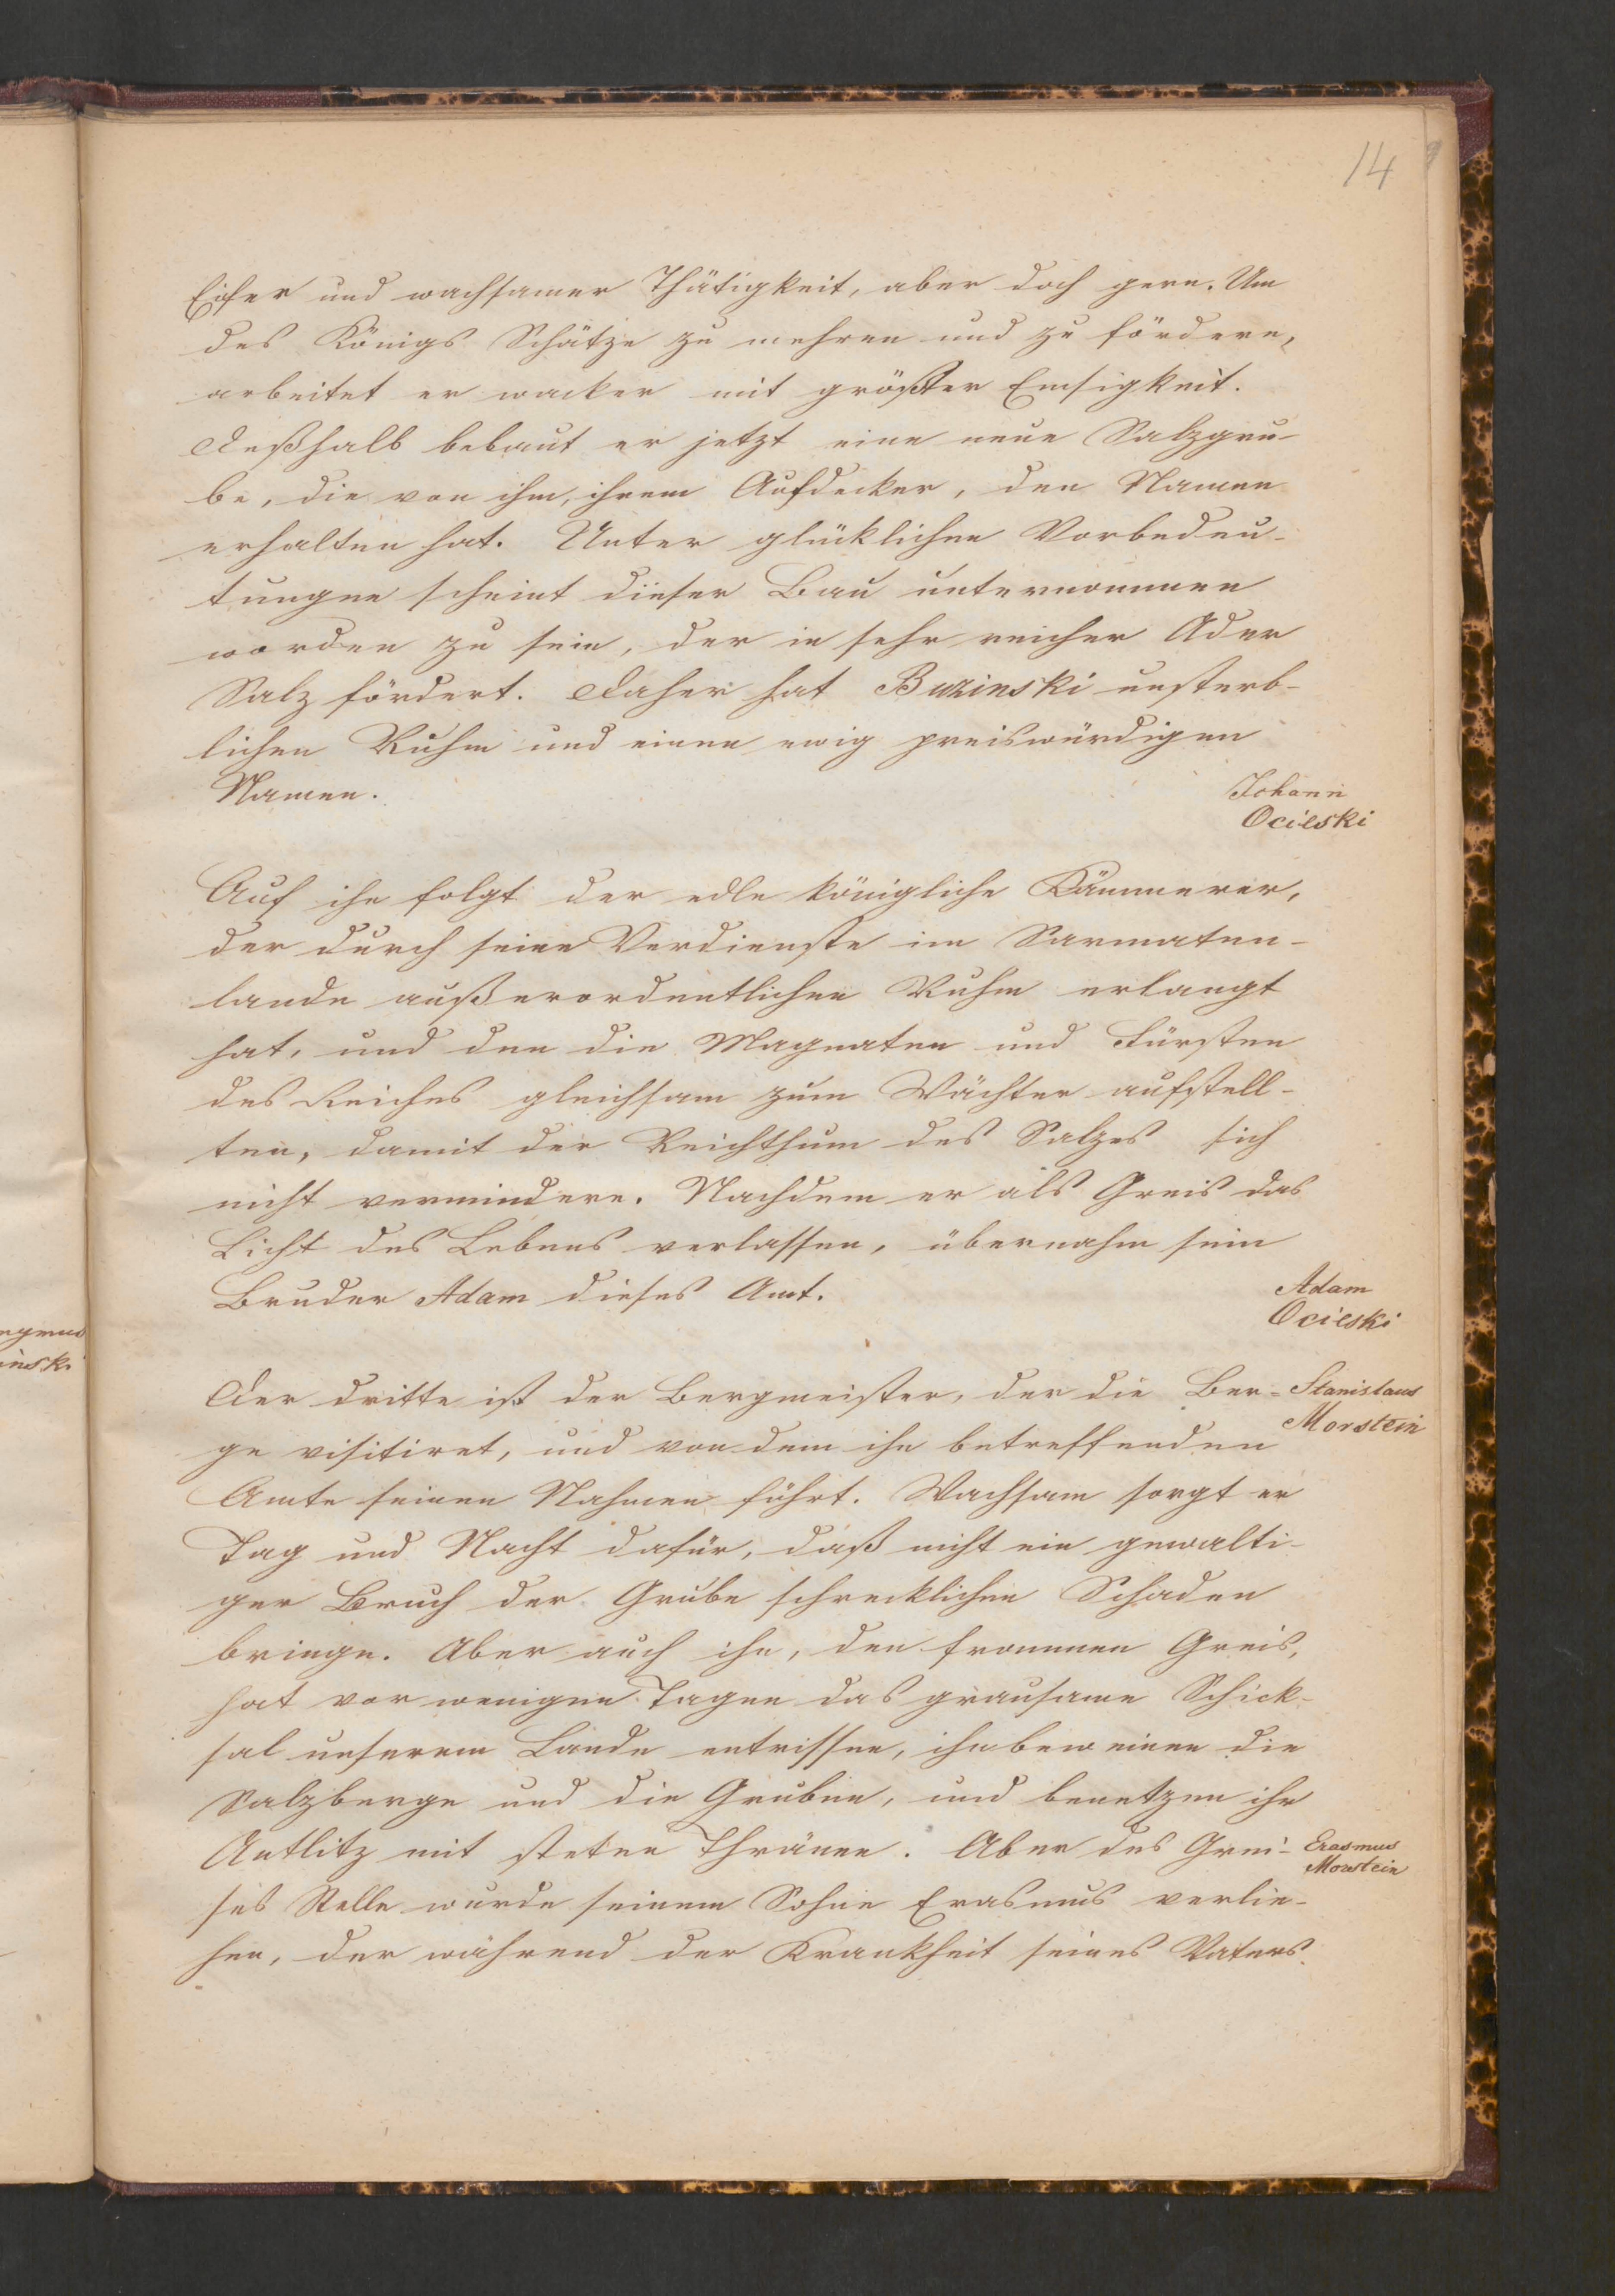 14
Eifer und wachsamer Thätigkeit, aber doch gern. Um
des Königs Schätze zu mehren und zu fördern,
arbeitet er wacker mit größter Emsigkeit.
Deßhalb bebaut er jetzt eine neue Salzgru-
be, die von ihm, ihrem Aufdecker, den Namen
erhalten hat. Unter glücklichen Vorbedeu-
tungen scheint dieser Bau unternommen
worden zu sein, der in sehr reicher Ader
Salz fördert. Daher hat Buzinski unsterb-
lichen Ruhm und einen ewig preiswürdigen
Namen.
Johann
Ocieski
Auf ihn folgt der edle königliche Kämmerer,
der durch seine Verdienste im Sarmaten-
lande außerordentlichen Ruhm erlangt
hat, und den die Magnaten und Fürsten
des Reiches gleichsam zum Wächter aufstell-
ten, damit der Reichthum des Salzes sich
nicht vermindere. Nachdem er als Greis das
Licht des Lebens verlassen, übernahm sein
Bruder Adam dieses Amt.
Adam
Ocieski
Der dritte ist der Bergmeister, der die Ber-
Stanislaus
Morstein
ge visitiret, und von dem ihn betreffenden
Amte seinen Nahmen führt. Wachsam sorgt er
Tag und Nacht dafür, daß nicht ein gewalti-
ger Bruch der Grube schrecklichen Schaden
bringe. Aber auch ihn, den frommen Greis,
hat vor wenigen Tagen das grausame Schick-
sal unserem Lande entrissen, ihn beweinen die
Salzberge und die Gruben, und benetzen ihr
Antlitz mit steten Thränen. Aber des Grei-
Erasmus
Morstein
ses Stelle wurde seinem Sohne Erasmus verlie-
hen, der während der Krankheit seines Vaters